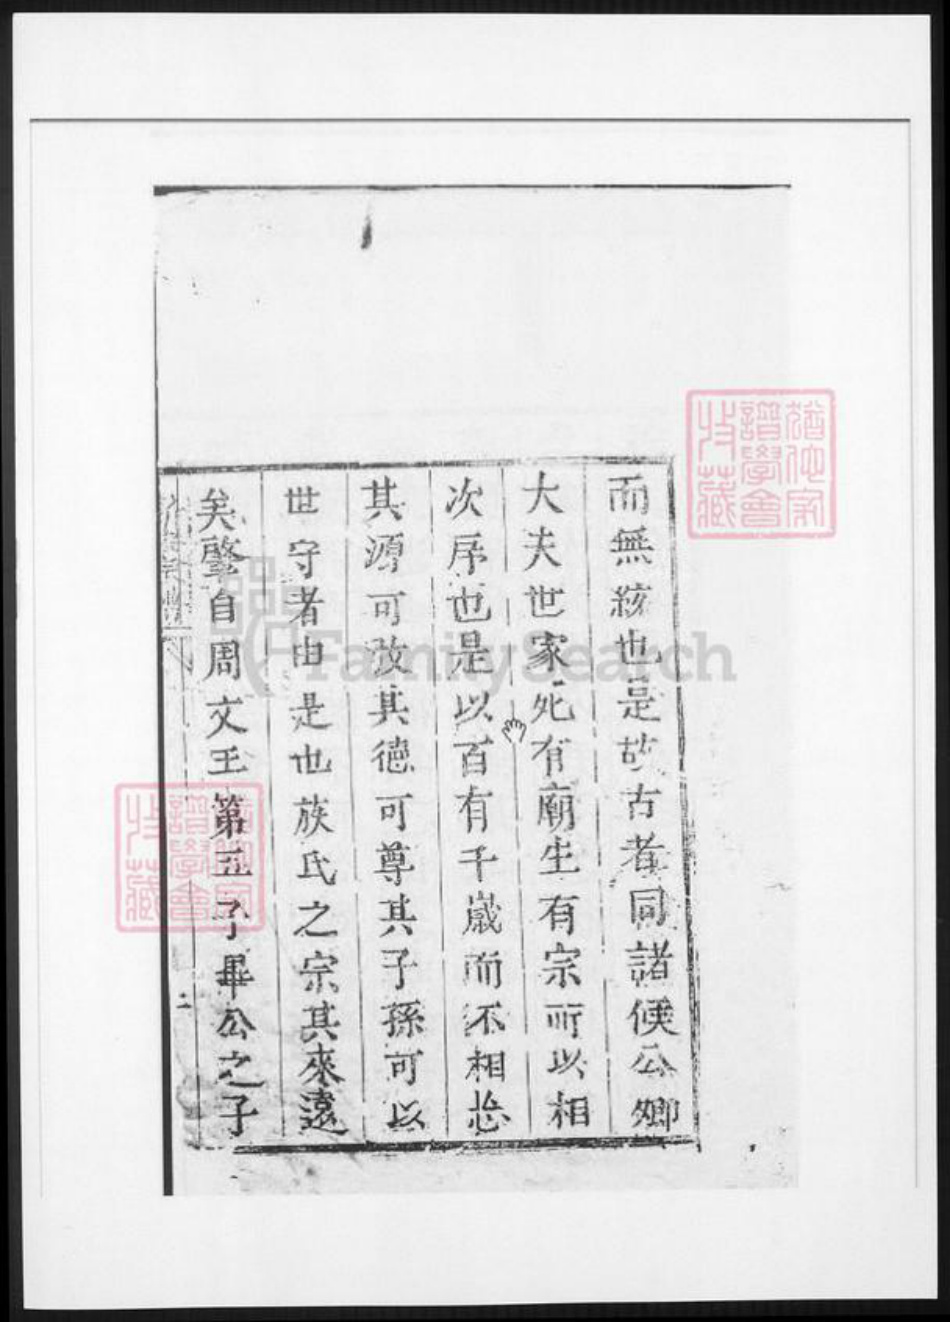 而無紊也是故古者同諸候公卿
大夫世家死有廟生有宗所以相
次序也是以百有千嵗而不相忘
其源可攷其德可尊其子孫可以
世守者由是也族氏之宗其來遠
矣肇自周文王第五子畢公之子
二
猶他家譜學會收藏
猶他家譜學會收藏
FamilySearch